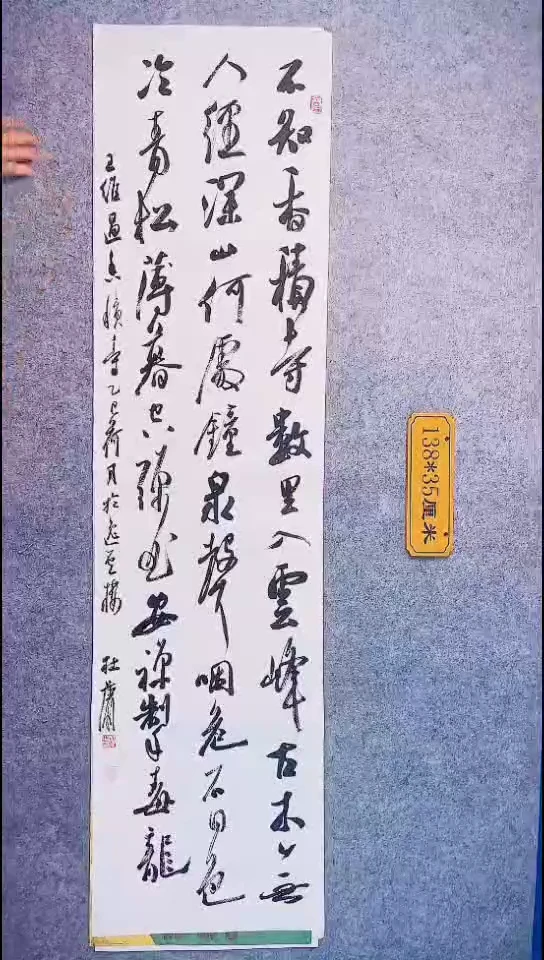 不知香積寺數里入雲峰古木無
人徑深山何處鐘泉聲咽危石日色
冷青松薄暮空潭曲安禪制毒龍
王維過香積寺乙巳荷月於
樓
杜
138*35厘米